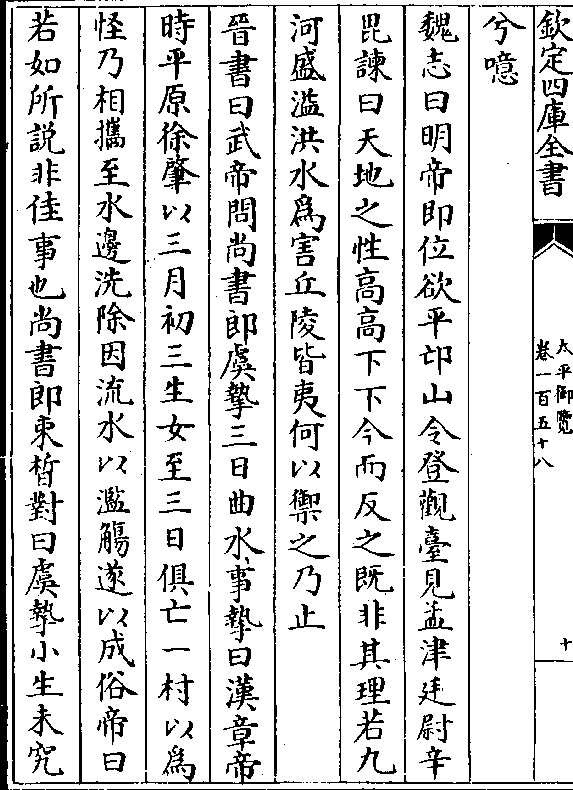 欽定四庫全書
太平御覽
卷一百五十八
十
兮噫
魏志曰明帝即位欲平邙山令登觀臺見孟津廷尉辛
毘諫曰天地之性高高下下今而反之既非其理若九
河盛溢洪水為害丘陵皆夷何以禦之乃止
晉書曰武帝問尚書郎虞摯三日曲水事摯曰漢章帝
時平原徐肇以三月初三生女至三日俱亡一村以為
怪乃相攜至水邊洗除因流水以濫觴遂以成俗帝曰
若如所説非佳事也尚書郎束晳對曰虞摯小生未究